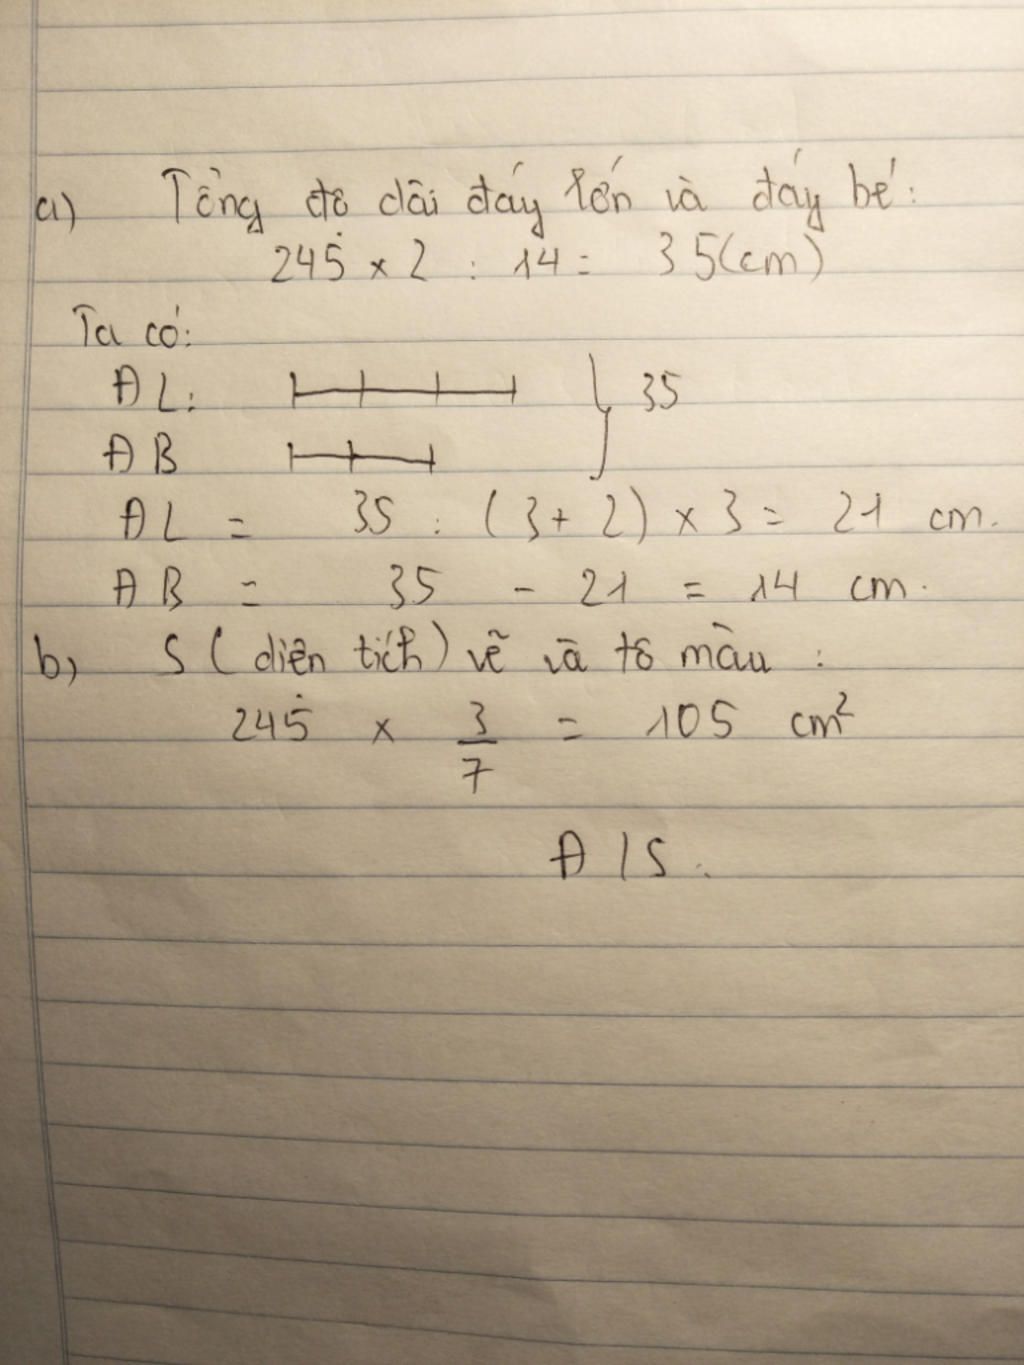 a) Tổng độ dài đáy lớn và đáy bé:
245 x 2 : 14 = 35(cm)
Ta có:
ĐL: 35
ĐB
ĐL = 35 : (3+2) x 3 = 21 cm.
ĐB = 35 - 21 = 14 cm.
b) S (diện tích) vẽ và tô màu :
245 x 3/7 = 105 cm²
Đ/S.